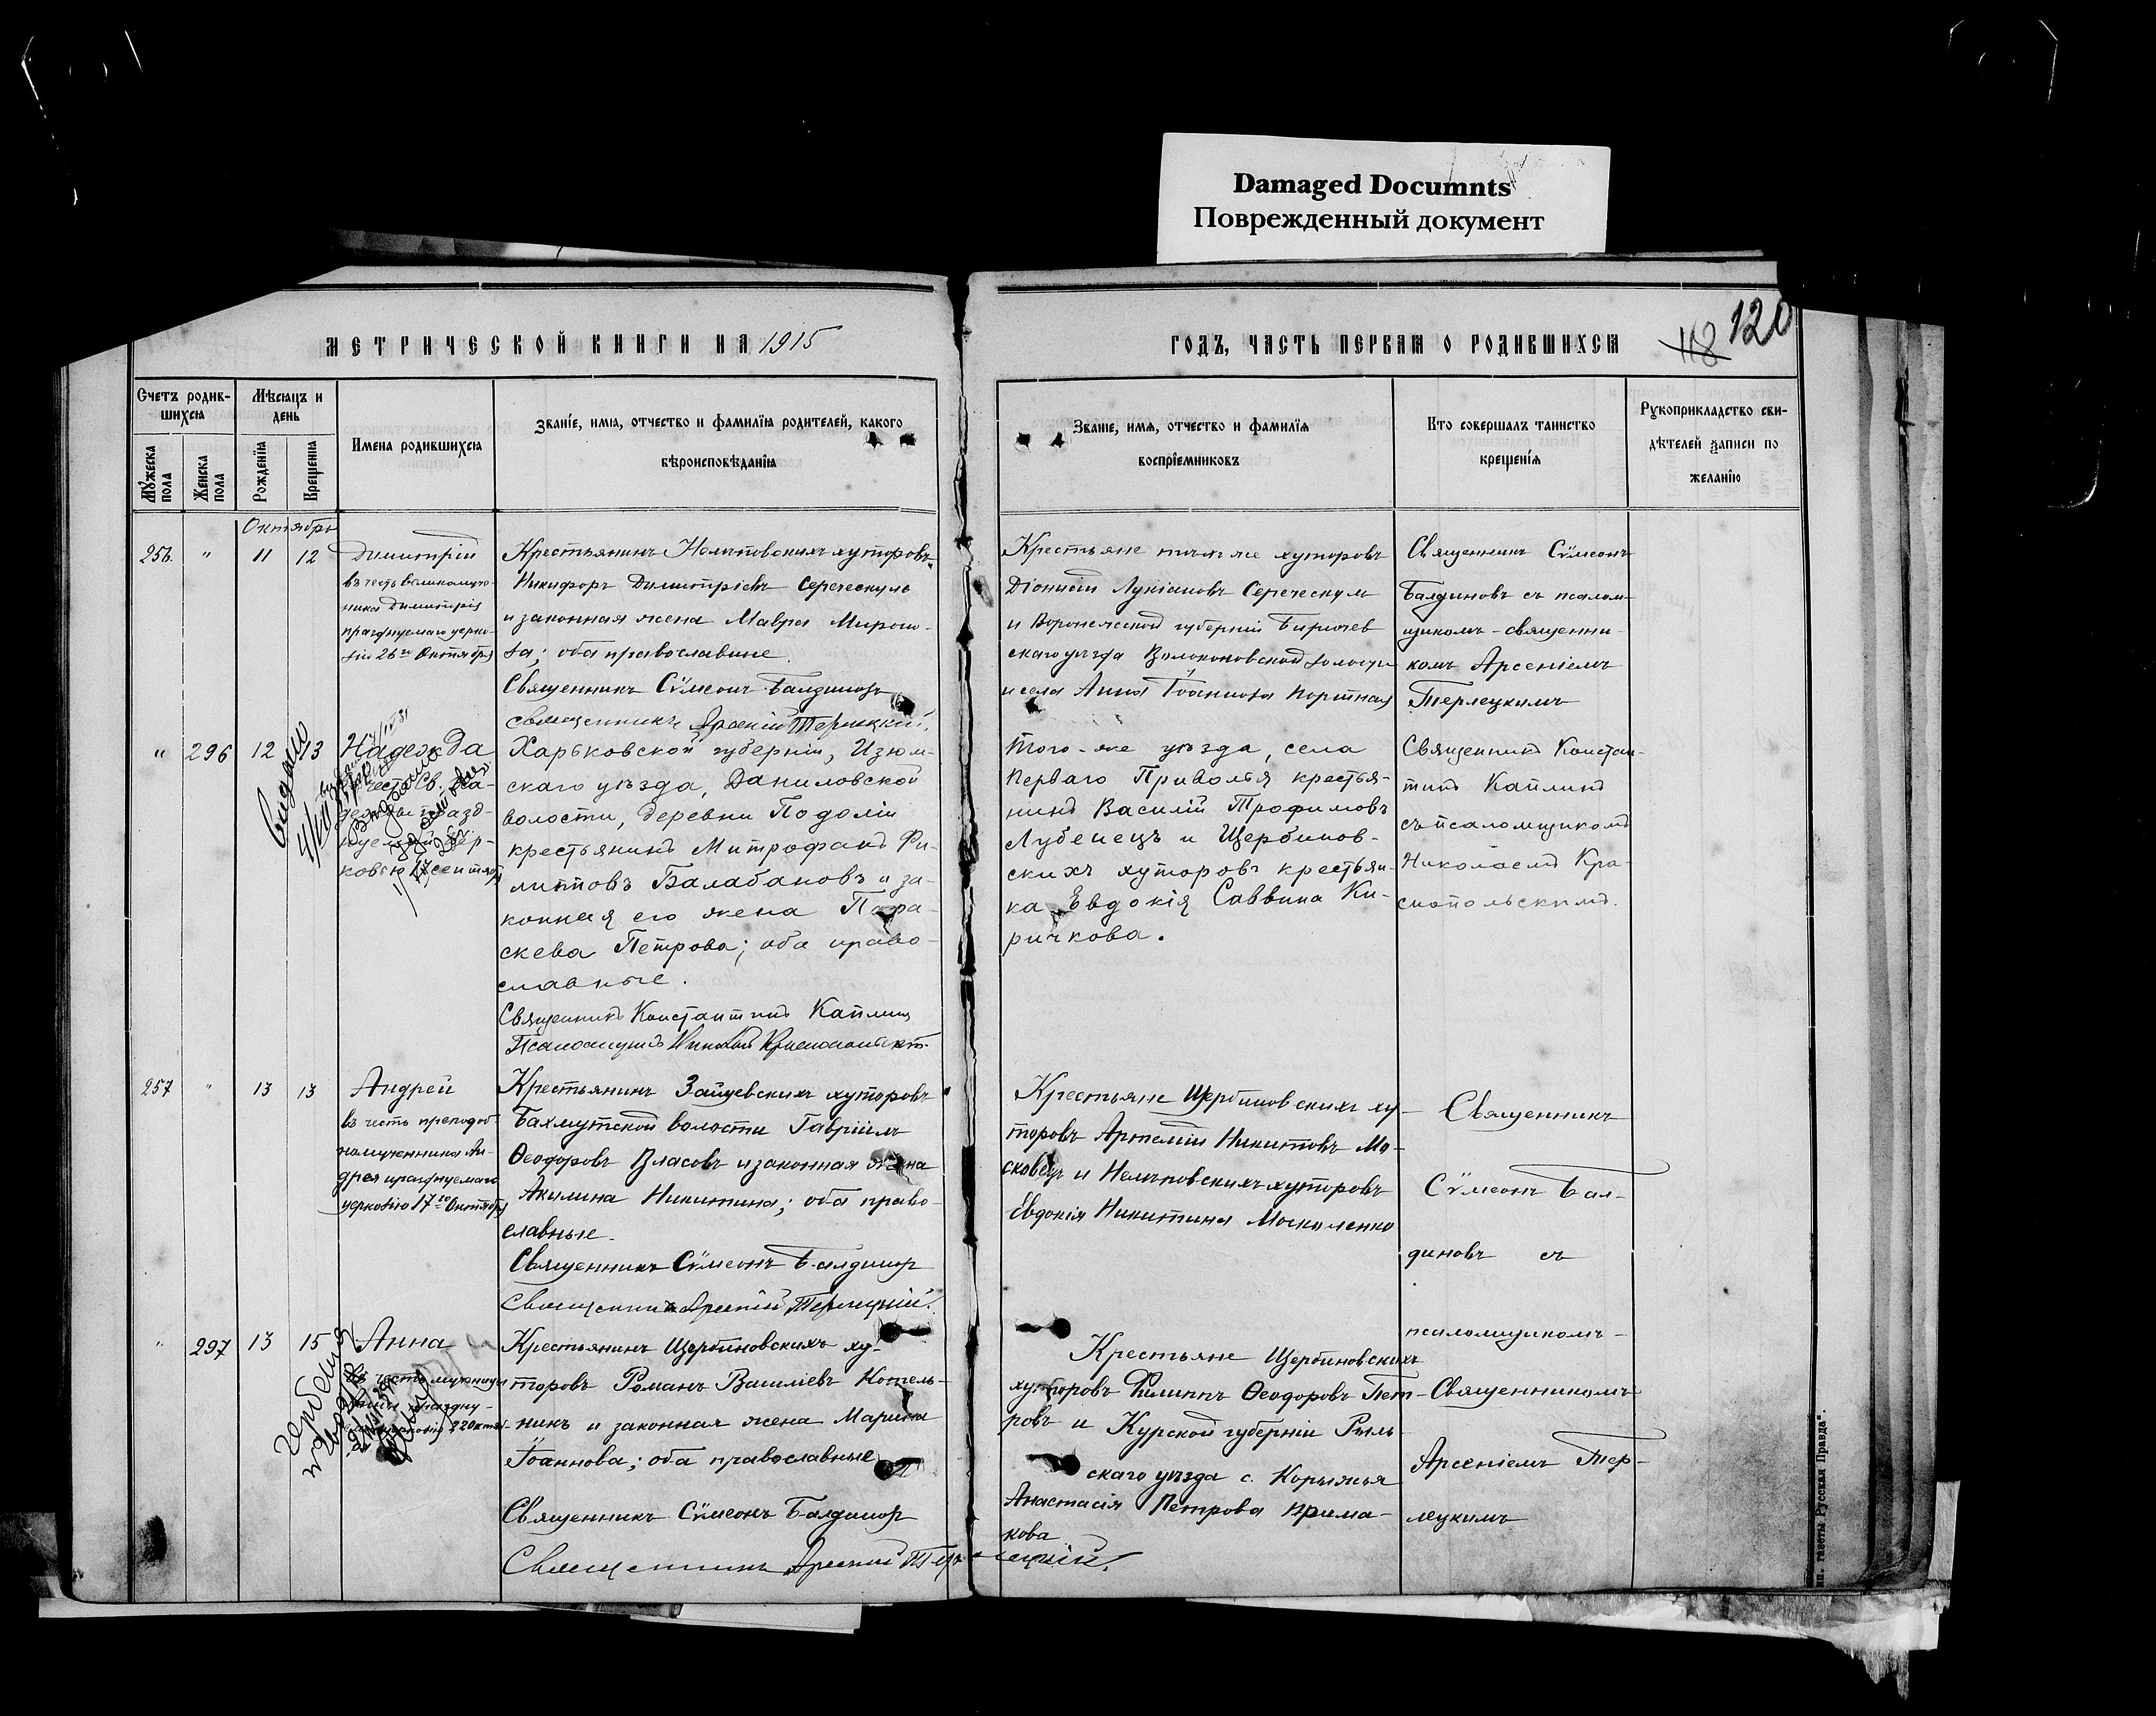 Damaged Documnts
Поврежденный документ
МЕТРИЧЕСКОЙ КНИГИ НА 1915
ГОДЪ, ЧАСТЬ ПЕРВАЯ О РОДИВШИХСЯ
118 120
Счетъ родив-
шихся
Мѣсяцъ и
день
Мужеска
пола
Женска
пола
Рожденія
Крещенія
Имена родившихся
Званіе, имя, отчество и фамилія родителей, какого
вѣроисповѣданія
Званіе, имя, отчество и фамилія
воспріемниковъ
Кто совершалъ таинство
крещенія
Рукоприкладство сви-
дѣтелей записи по
желанію
Октябрь
256. " 11 12
Димитрій
въ честь великомуче-
ника Димитрія
празднуемаго церко-
вію 26го Октября
Крестьянинъ Нелѣповскихъ хуторовъ
Никифоръ Димитріевъ Сереческуль
и законная жена Мавра Миро
ва; оба православные
Священникъ Сѵмеонъ Балдиновъ
Священникъ Арсеній Терлецкій.
Крестьяне тѣхъ же хуторовъ
Діонисій Лукіановъ Сереческулъ
и Воронежской губерніи Бирючев
скаго уѣзда Волоконовской волости
и села Анна Іоаннова
Священникъ Сѵмеонъ
Балдиновъ съ псалом-
щикомъ-священни-
комъ Арсеніемъ
Терлецкимъ
" 296 12 13
Надежда
въ честь Св. На-
дежды празд-
нуемой Цер-
ковью 17 сентября
Видано
Харьковской губерніи, Изюм-
скаго уѣзда, Даниловской
волости, деревни Подолій
крестьянинъ Митрофанъ Фи-
липповъ Балабановъ и за-
конная его жена Пара-
скева Петрова; оба право-
славные.
Священникъ Константинъ Каплинъ
Псаломщикъ Николай Краснопольскій.
Того-же уѣзда, села
Перваго Приволья крестья-
нинъ Василій Трофимовъ
Лубенецъ и Щербинов-
скихъ хуторовъ крестьян-
ка Евдокія Саввина Ки-
ричкова.
Священникъ Констан-
тинъ Каплинъ
съ псаломщикомъ
Николаемъ Кра-
снопольскимъ.
257 " 13 13
Андрей
въ честь преподоб-
номученника Ан-
дрея празднуемаго
церковію 17го Октября
Крестьянинъ Зайцевскихъ хуторовъ
Бахмутской волости Гавріилъ
Ѳеодоровъ Власовъ и законная жена
Акилина Никитина; оба право-
славные.
Священникъ Сѵмеонъ Балдиновъ
Священникъ Арсеній Терлецкій.
Крестьяне Щербиновскихъ ху-
торовъ Артемій Никитовъ Мо-
сковецъ и Нелѣповскихъ хуторовъ
Евдокія Никитина Москаленко
Священникъ
Сѵмеонъ Бал-
диновъ съ
псаломщикомъ-
Священникомъ
Арсеніемъ Тер-
лецкимъ
" 297 13 15
Анна
въ честь мученицы
Анны праздну-
церковію 22 Октяб-
Крестьянинъ Щербиновскихъ ху-
торовъ Романъ Василіевъ Котель-
никъ и законная жена Марина
Іоаннова; оба православные
Священникъ Сѵмеонъ Балдиновъ
Священникъ Арсеній Терлецкій.
Крестьяне Щербиновскихъ
хуторовъ Филиппъ Ѳеодоровъ Пет-
ровъ и Курской губерніи Рыль-
скаго уѣзда с. Корыжья
Анастасія Петрова Прима-
кова
газеты Русская Правда".